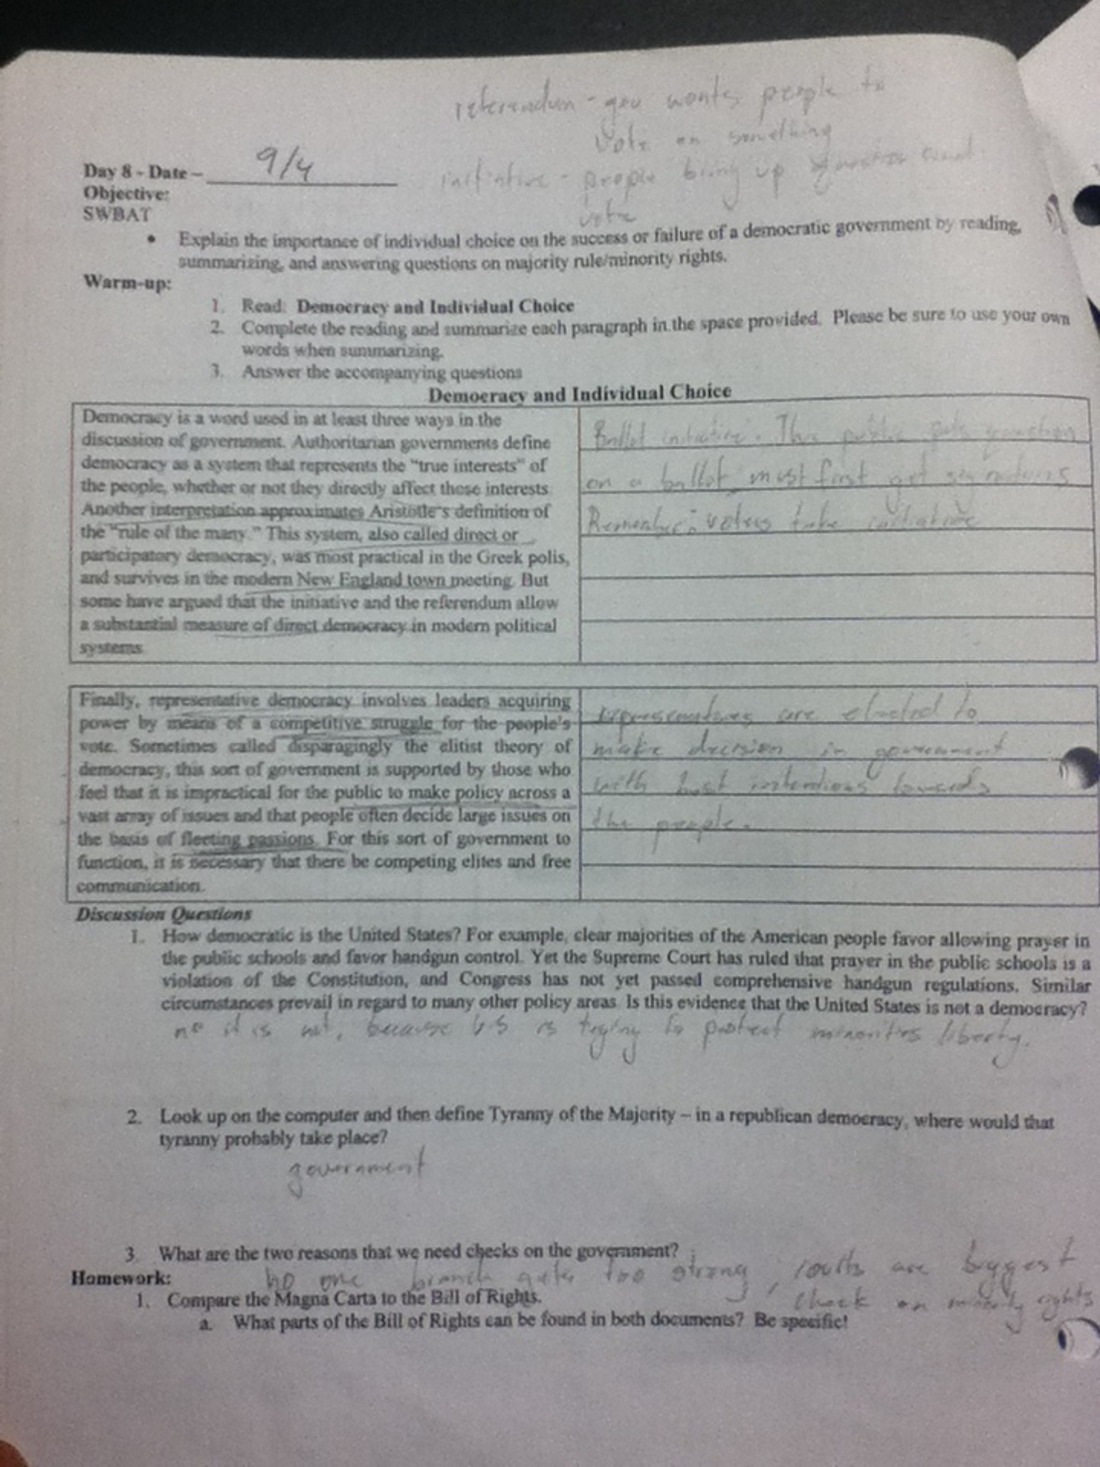 referendum - gov wants people to
vote on something
Day 8 - Date – 9/4
initiative - people bring up
vote
Objective:
SWBAT
• Explain the importance of individual choice on the success or failure of a democratic government by reading,
summarizing, and answering questions on majority rule/minority rights.
Warm-up:
1. Read: Democracy and Individual Choice
2. Complete the reading and summarize each paragraph in the space provided. Please be sure to use your own
words when summarizing.
3. Answer the accompanying questions
Democracy and Individual Choice
Democracy is a word used in at least three ways in the
discussion of government. Authoritarian governments define
democracy as a system that represents the "true interests" of
the people, whether or not they directly affect those interests.
Another interpretation approximates Aristotle's definition of
the "rule of the many." This system, also called direct or
participatory democracy, was most practical in the Greek polis,
and survives in the modern New England town meeting. But
some have argued that the initiative and the referendum allow
a substantial measure of direct democracy in modern political
systems.
Ballot initiative: The public puts question
on a ballot, must first get signatures
Remember: voters take initiative
Finally, representative democracy involves leaders acquiring
power by means of a competitive struggle for the people's
vote. Sometimes called disparagingly the elitist theory of
democracy, this sort of government is supported by those who
feel that it is impractical for the public to make policy across a
vast array of issues and that people often decide large issues on
the basis of fleeting passions. For this sort of government to
function, it is necessary that there be competing elites and free
communication.
representatives are elected to
make decision in government
with best intentions towards
the people.
Discussion Questions
1. How democratic is the United States? For example, clear majorities of the American people favor allowing prayer in
the public schools and favor handgun control. Yet the Supreme Court has ruled that prayer in the public schools is a
violation of the Constitution, and Congress has not yet passed comprehensive handgun regulations. Similar
circumstances prevail in regard to many other policy areas. Is this evidence that the United States is not a democracy?
no it is not, because US is trying to protect minorities liberty.
2. Look up on the computer and then define Tyranny of the Majority – in a republican democracy, where would that
tyranny probably take place?
government
3. What are the two reasons that we need checks on the government?
no one branch gets too strong, courts are biggest
check on minority rights
Homework:
1. Compare the Magna Carta to the Bill of Rights.
a. What parts of the Bill of Rights can be found in both documents? Be specific!